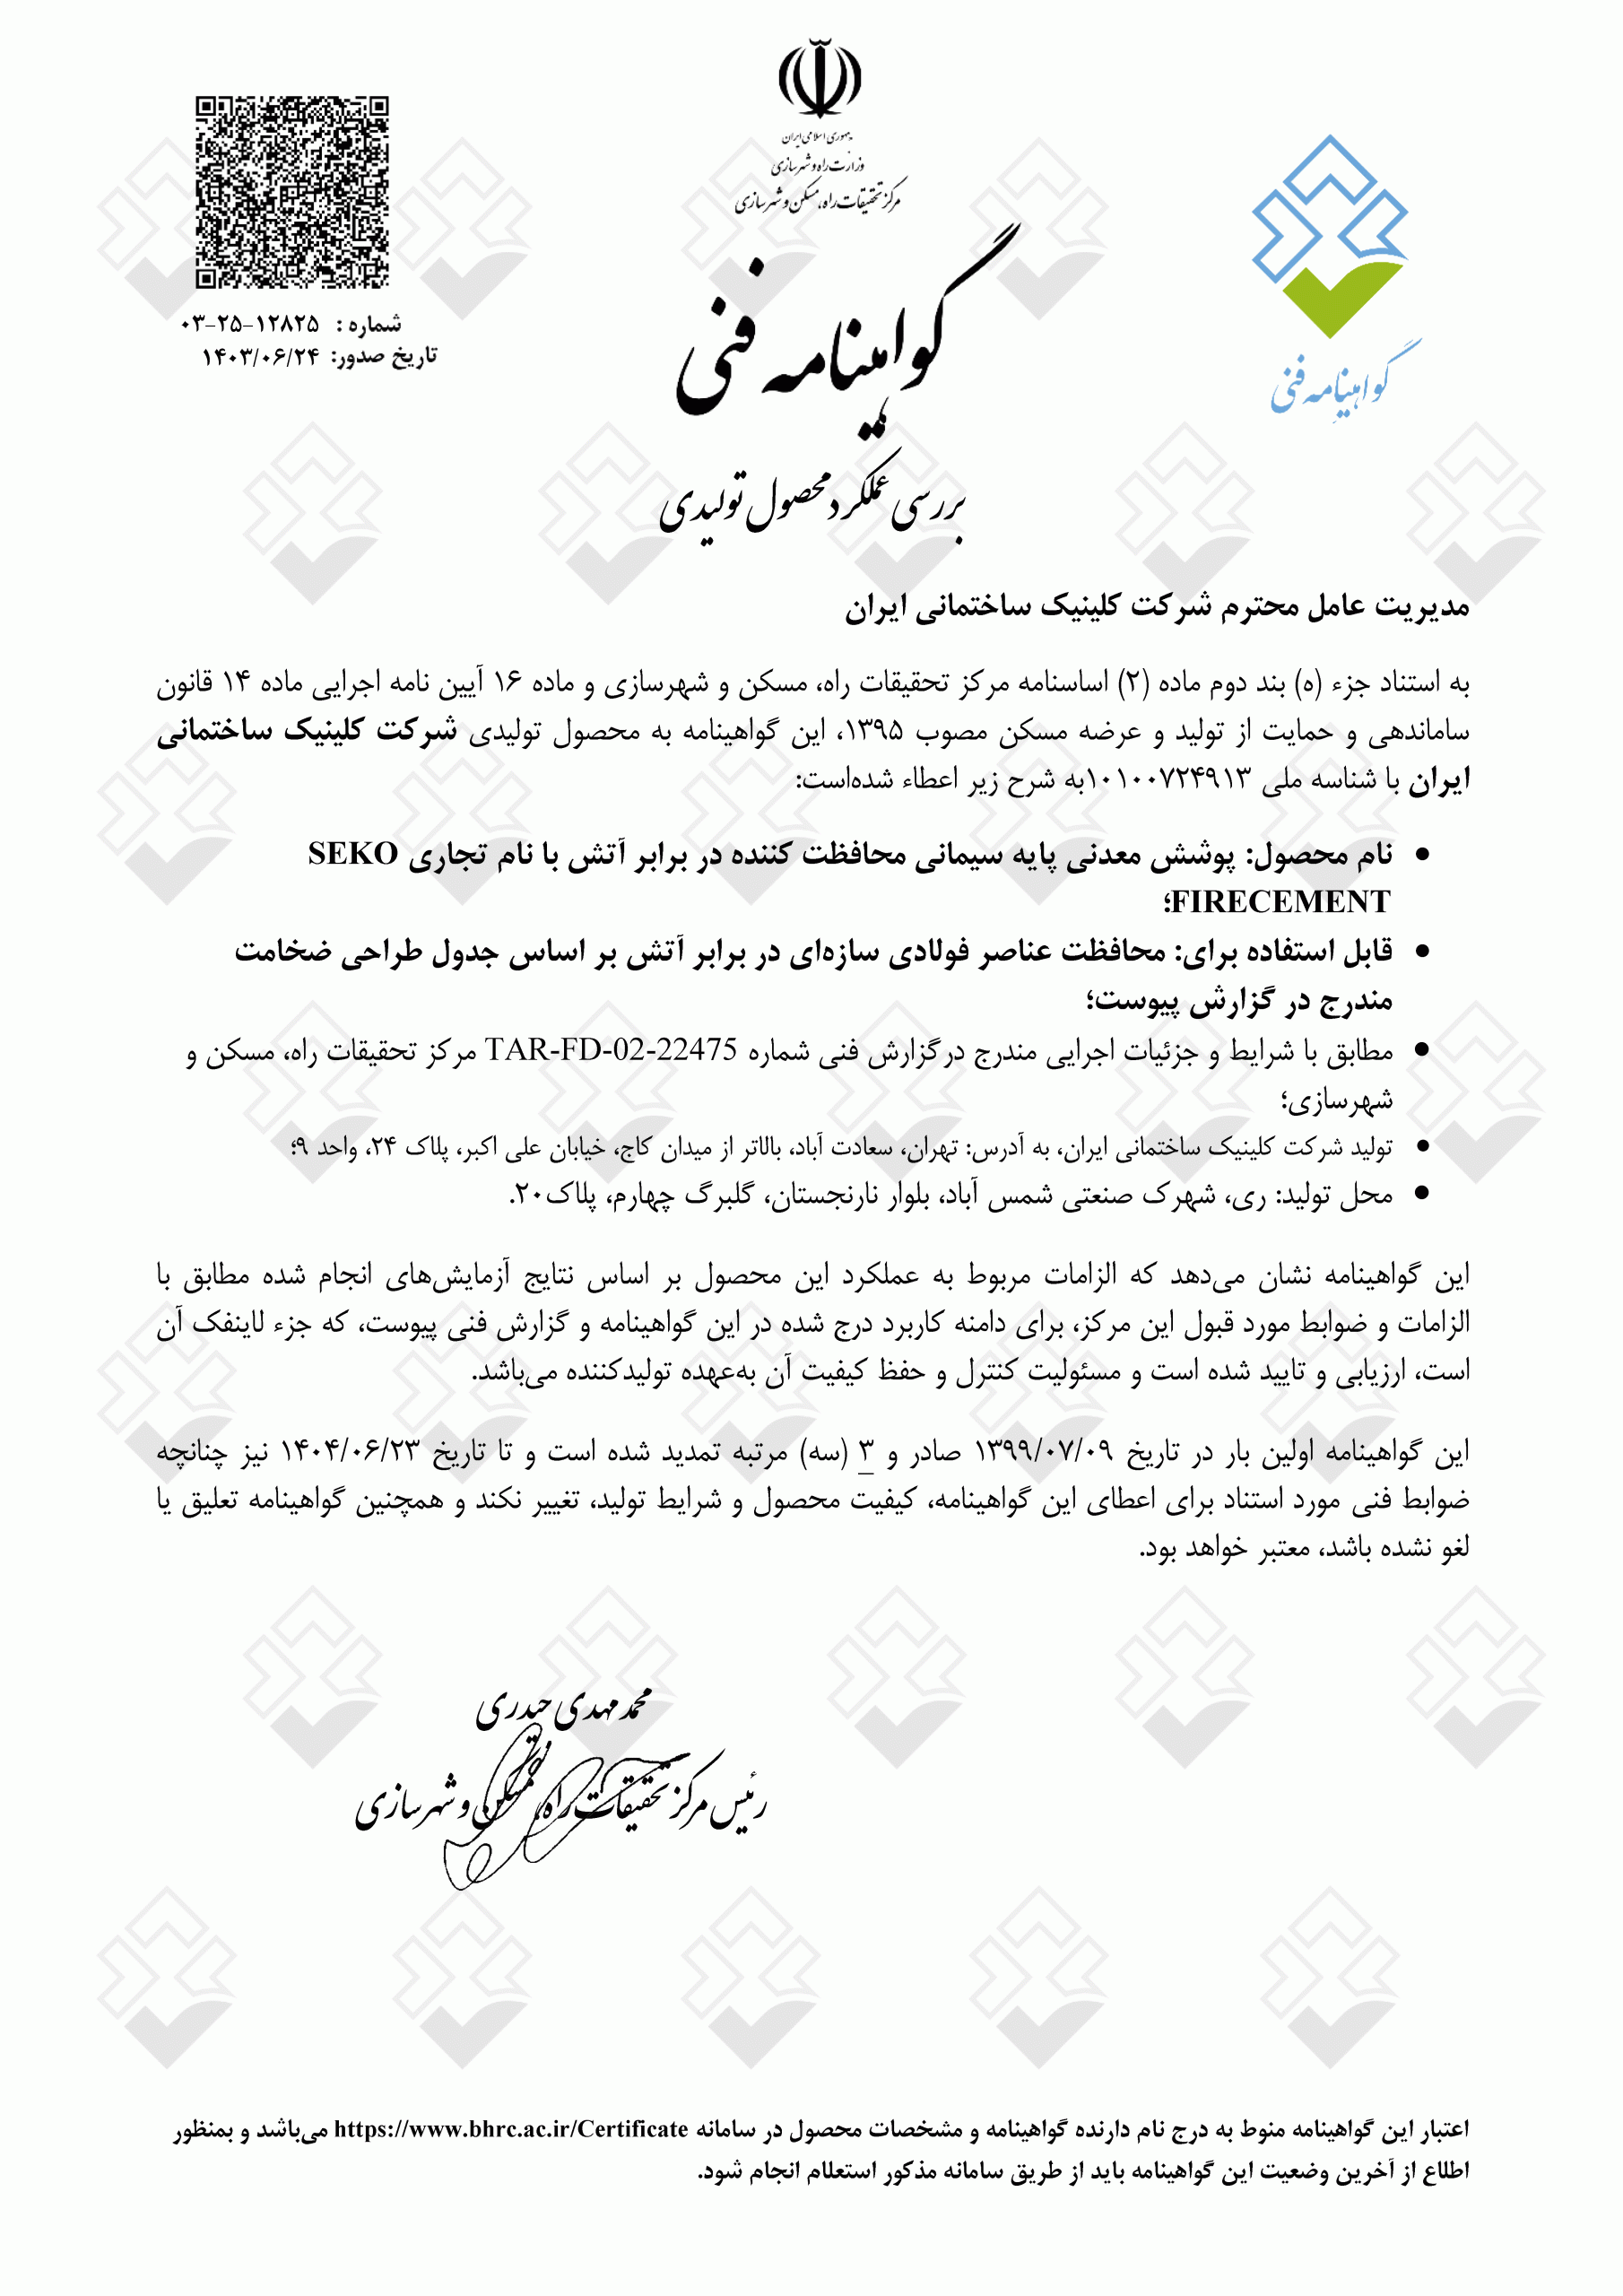 جمهوری اسلامی ایران
وزارت راه و شهرسازی
مرکز تحقیقات راه، مسکن و شهرسازی
گواهینامه فنی
گواهینامه فنی
شماره : ۰۳-۲۵-۱۲۸۲۵
تاریخ صدور: ۱۴۰۳/۰۶/۲۴
بررسی عملکرد محصول تولیدی
مدیریت عامل محترم شرکت کلینیک ساختمانی ایران
به استناد جزء (ه) بند دوم ماده (۲) اساسنامه مرکز تحقیقات راه، مسکن و شهرسازی و ماده ۱۶ آیین نامه اجرایی ماده ۱۴ قانون
ساماندهی و حمایت از تولید و عرضه مسکن مصوب ۱۳۹۵، این گواهینامه به محصول تولیدی شرکت کلینیک ساختمانی
ایران با شناسه ملی ۱۰۱۰۰۷۲۴۹۱۳به شرح زیر اعطاء شده‌است:
• نام محصول: پوشش معدنی پایه سیمانی محافظت کننده در برابر آتش با نام تجاری SEKO
FIRECEMENT؛
• قابل استفاده برای: محافظت عناصر فولادی سازه‌ای در برابر آتش بر اساس جدول طراحی ضخامت
مندرج در گزارش پیوست؛
• مطابق با شرایط و جزئیات اجرایی مندرج درگزارش فنی شماره TAR-FD-02-22475 مرکز تحقیقات راه، مسکن و
شهرسازی؛
• تولید شرکت کلینیک ساختمانی ایران، به آدرس: تهران، سعادت آباد، بالاتر از میدان کاج، خیابان علی اکبر، پلاک ۲۴، واحد ۹؛
• محل تولید: ری، شهرک صنعتی شمس آباد، بلوار نارنجستان، گلبرگ چهارم، پلاک۲۰.
این گواهینامه نشان می‌دهد که الزامات مربوط به عملکرد این محصول بر اساس نتایج آزمایش‌های انجام شده مطابق با
الزامات و ضوابط مورد قبول این مرکز، برای دامنه کاربرد درج شده در این گواهینامه و گزارش فنی پیوست، که جزء لاینفک آن
است، ارزیابی و تایید شده است و مسئولیت کنترل و حفظ کیفیت آن به‌عهده تولیدکننده می‌باشد.
این گواهینامه اولین بار در تاریخ ۱۳۹۹/۰۷/۰۹ صادر و ۳ (سه) مرتبه تمدید شده است و تا تاریخ ۱۴۰۴/۰۶/۲۳ نیز چنانچه
ضوابط فنی مورد استناد برای اعطای این گواهینامه، کیفیت محصول و شرایط تولید، تغییر نکند و همچنین گواهینامه تعلیق یا
لغو نشده باشد، معتبر خواهد بود.
محمد مهدی حیدری
رئیس مرکز تحقیقات راه، مسکن و شهرسازی
اعتبار این گواهینامه منوط به درج نام دارنده گواهینامه و مشخصات محصول در سامانه https://www.bhrc.ac.ir/Certificate می‌باشد و بمنظور
اطلاع از آخرین وضعیت این گواهینامه باید از طریق سامانه مذکور استعلام انجام شود.